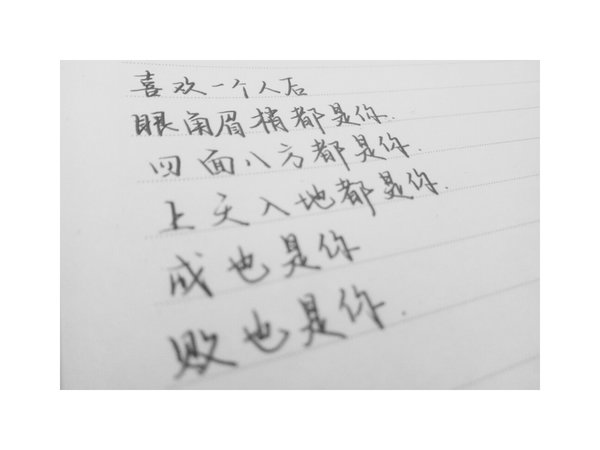 喜欢一个人后
眼角眉梢都是你.
四面八方都是你.
上天入地都是你.
成也是你
败也是你.